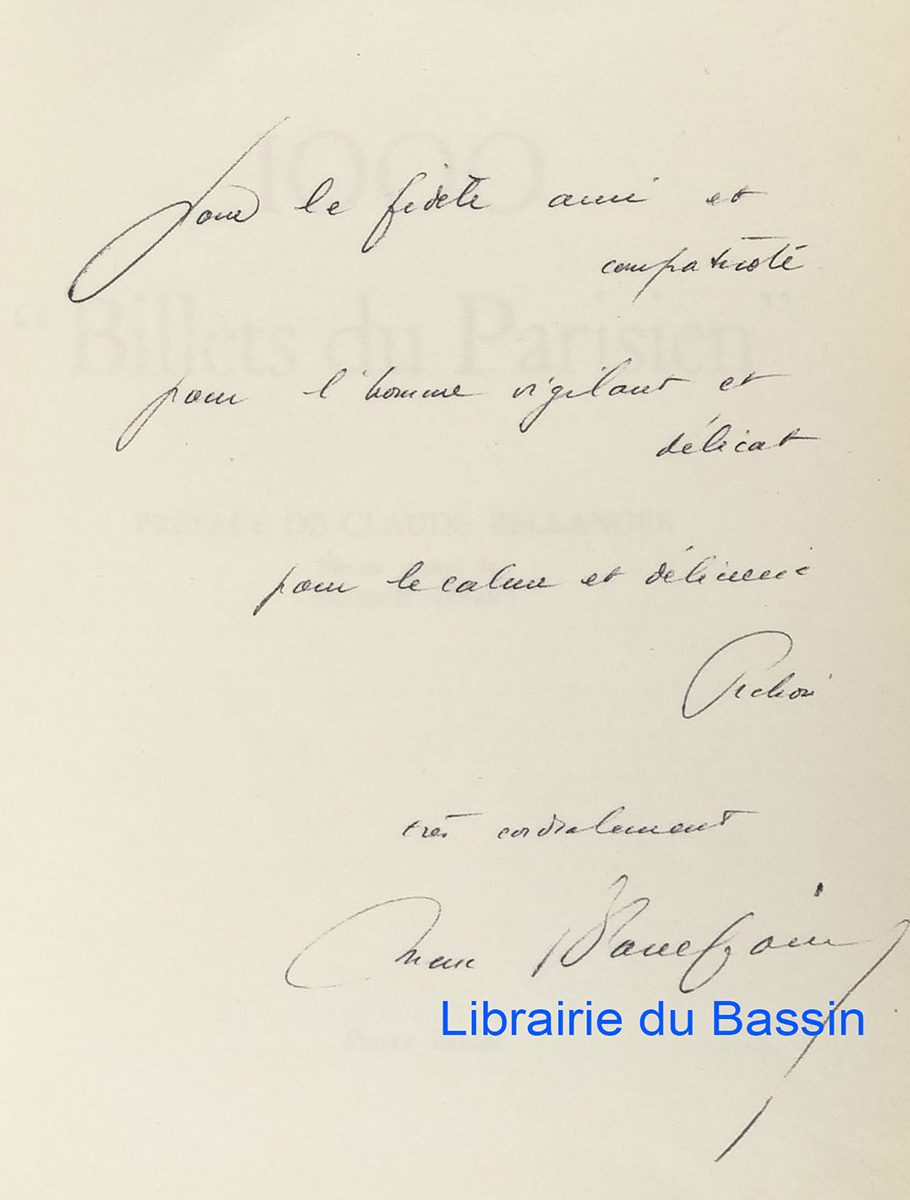 Pour le fidèle ami et
compatriote
pour l'homme vigilant et
délicat
pour le calme et
très cordialement
Librairie du Bassin
1000
"Billets du Parisien"
PRÉFACE DE CLAUDE BELLANGER